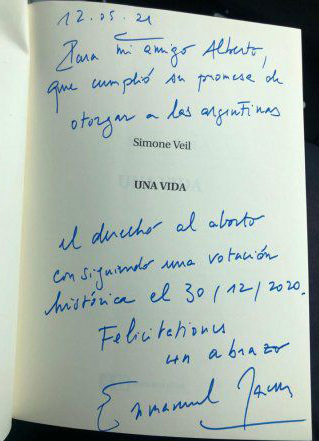 12.05.21
Para mi amigo Alberto,
que cumplió su promesa de
otorgar a las argentinas
Simone Veil
UNA VIDA
el derecho al aborto
consiguiendo una votación
histórica el 30/12/2020.
Felicitations
un abrazo
Emmanuel